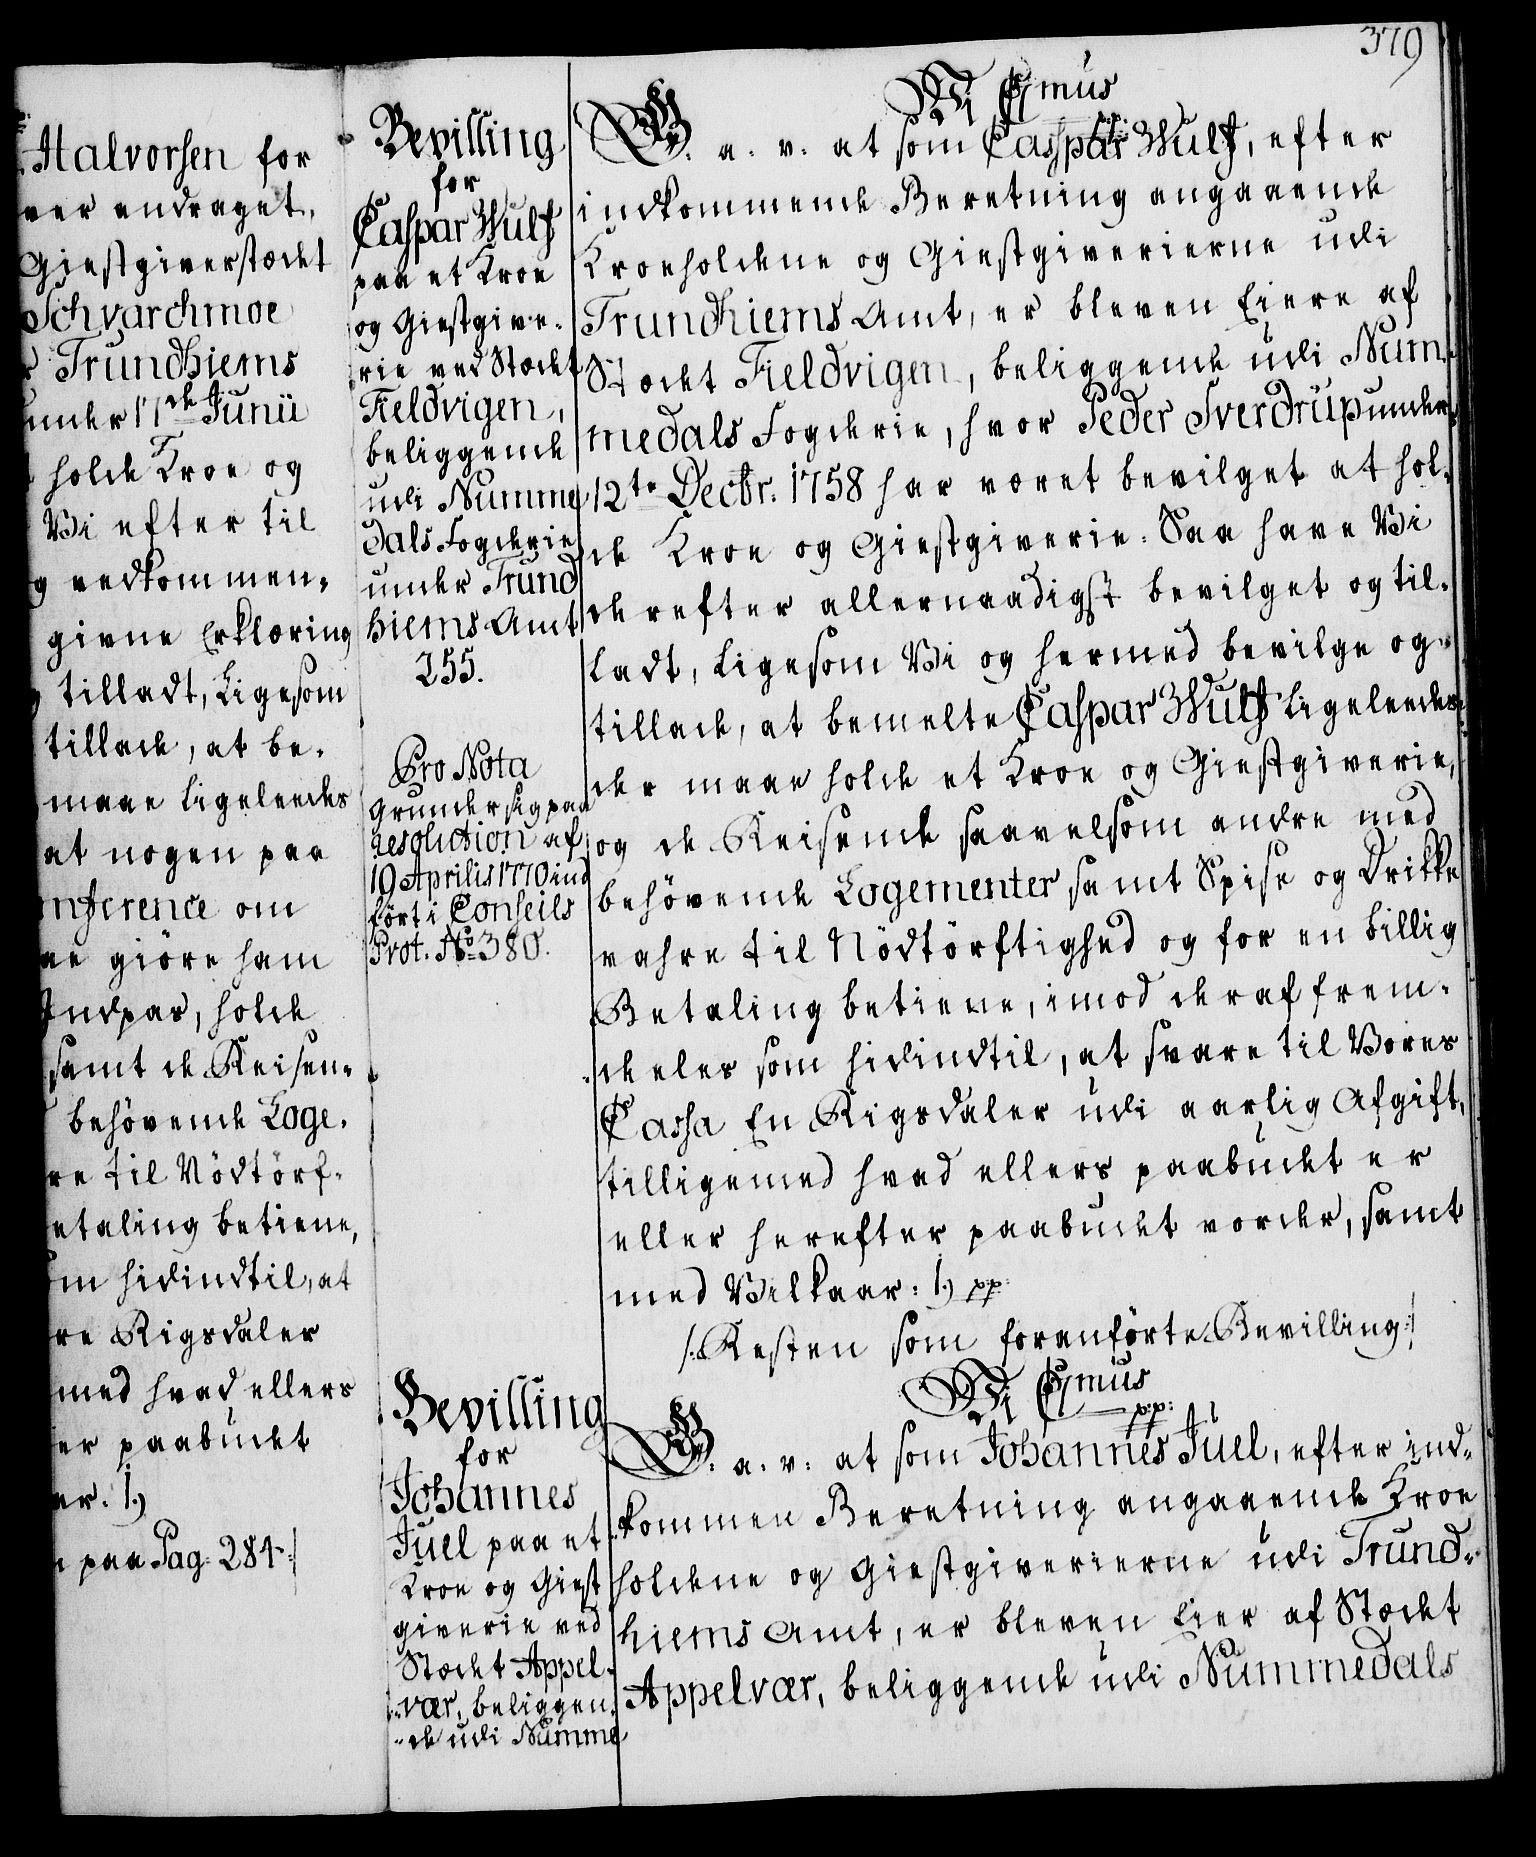 379
Halvorsen for
ver andraget,
Giestgiverstædet
Schvardmoe
Trundhiems
under 17de Junii
holde Kroe og
Vi efter til
g vedkommen-
givne Erklæring
tilladt, Ligesom
tillade, at be-
maae Ligeledes
at nogen paa
nference om
ae giöre ham
Indpas, holde
samt de Reisen-
behövende Loge-
re til Nödtörf-
etaling betiene,
om hidindtil, at
re Rigsdaler
med hvad ellers
er paabudet
er: 1.)
paa Pag: 284:/
Bevilling
for
Caspar Wulf
paa et Kroe
og Giestgive-
rie ved Stædet
Fieldvigen,
beliggende
udi Numme
dals Fogderie
under Trund
hiems Amt
255.
Pro Nota
grunder sig paa
resolution af
19 Aprilis 1770 ind
fört i Conseils
Prot. No 380.
Bevilling
for
Johannes
Juel paa et
Kroe og Giest
giverie ved
Stædet Appel-
vær, beliggen-
de udi Numme
Vi C 7mus
G. a. v. at som Caspar Wulf, efter
indkommende Beretning angaaende
Kroeholdene og Giestgiverierne udi
Trundhiems Amt, er bleven Eiere af
Stædet Fieldvigen, beliggende udi Num-
medals Fogderie, hvor Peder Sverdrup under
12te Decbr. 1758 har været bevilget at hol-
de Kroe og Giestgiverie: Saa have Vi
derefter allernaadigst bevilget og til-
ladt, Ligesom Vi og hermed bevilge og
tillade, at bemelte Caspar Wulf Ligeledes
der maae holde et Kroe og Giestgiverie,
og de Reisende saavelsom andre med
behövende Logementer samt Spise og Drikke
vahre til Nödtörftighed og for en billig
Betaling betiene, imod deraf frem-
deles som hidindtil, at svare til Vores
Cassa En Rigsdaler udi aarlig Afgift,
tilligemed hvad ellers paabudet er
eller herefter paabudet vorder, samt
med Vilkaar: 1.) pp:
/: Resten som foranförte Bevilling :/
Vi C 7mus
pp:
G. a. v. at som Johannes Juel, efter ind-
kommen Beretning angaaende Kroe
holdene og Giestgiverierne udi Trund-
hiems Amt, er bleven Eier af Stædet
Appelvær, beliggende udi Nummedals